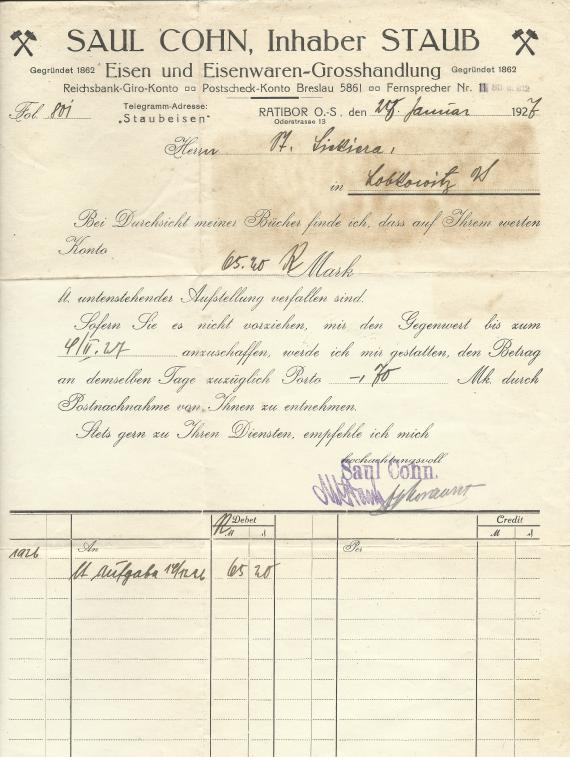 SAUL COHN, Inhaber STAUB
Gegründet 1862 Eisen und Eisenwaren-Grosshandlung Gegründet 1862
Reichsbank-Giro-Konto ¤¤ Postscheck-Konto Breslau 5861 ¤¤ Fernsprecher Nr.
Fol. 801 Telegramm-Adresse: „Staubeisen" RATIBOR O.-S., den 27. Januar 1927
Oderstrasse 13
Herrn St.
in Lobkowitz
Bei Durchsicht meiner Bücher finde ich, dass auf Ihrem werten
Konto
65.20 R Mark
lt. untenstehender Aufstellung verfallen sind.
Sofern Sie es nicht vorziehen, mir den Gegenwert bis zum
4/II.27 anzuschaffen, werde ich mir gestatten, den Betrag
an demselben Tage zuzüglich Porto -,70 Mk. durch
Postnachnahme von Ihnen zu entnehmen.
Stets gern zu Ihren Diensten, empfehle ich mich
hochachtungsvoll
Saul Cohn.
R Debet Credit
M ₰ M ₰
1926 An Per
lt Aufgabe 65 20